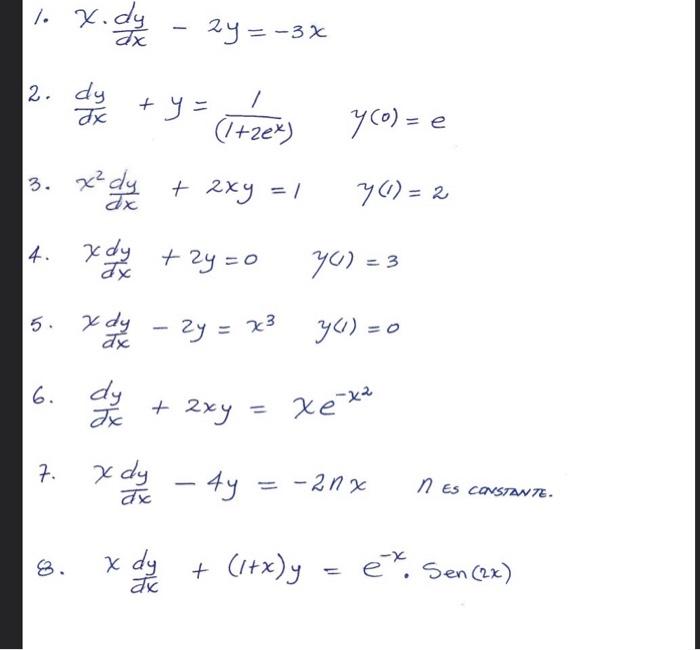 1. x · dy/dx - 2y = -3x
2. dy/dx + y = 1/(1+2eˣ) y(0) = e
3. x² dy/dx + 2xy = 1 y(1) = 2
4. x dy/dx + 2y = 0 y(1) = 3
5. x dy/dx - 2y = x³ y(1) = 0
6. dy/dx + 2xy = xe^-x²
7. x dy/dx - 4y = -2nx n ES CONSTANTE.
8. x dy/dx + (1+x)y = e^-x · Sen(2x)